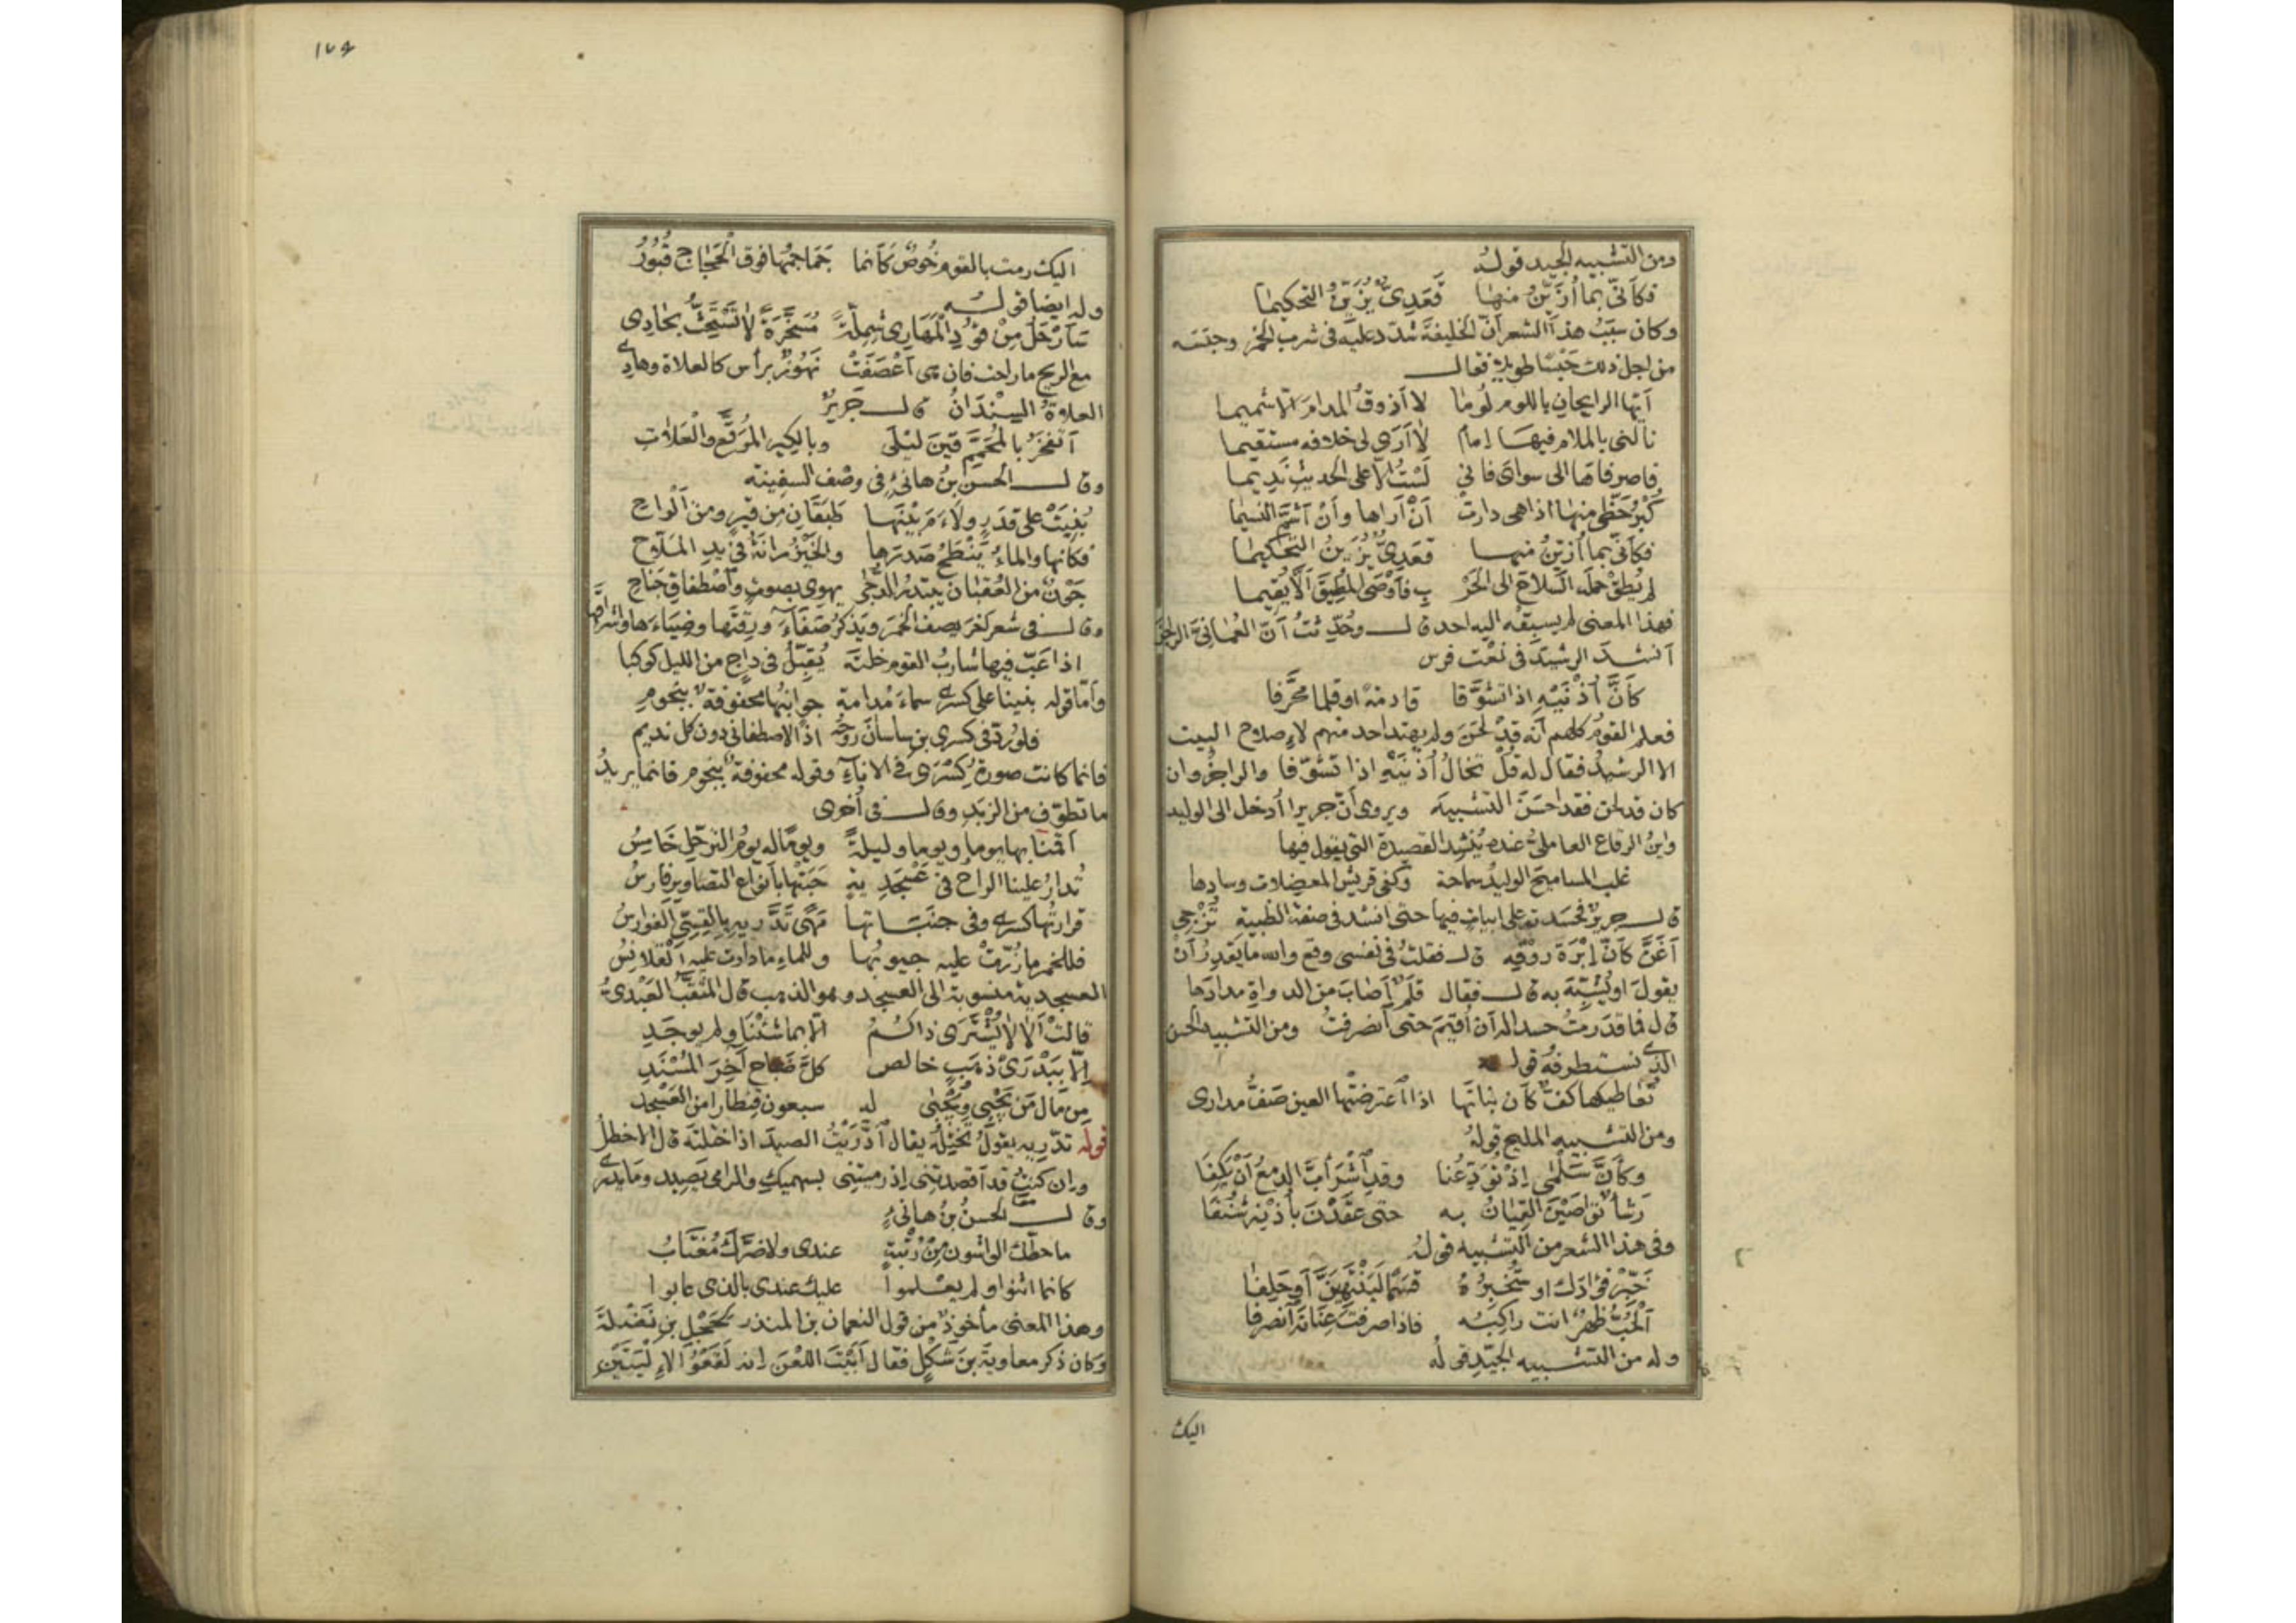 ومن التشبيه الجيد قوله
فكأنّي بما أُزيّنُ منها فَعَدِيٌّ يُزَيِّنُ التحكيما
وكان سَبَبُ هذا الشعر أنّ الخليفة شدّد عليه في شرب الخمر وحبَسَه
من اجل ذلك حَبْسًا طويلا فقال
أيّها الرايحان باللوم لُوما لا أذوقُ المدامَ الّا شميما
نالني بالملام فيهَا إمامٌ لا أرَى لي خلافه مستقيما
فاصرفاها الى سواى فاني لَسْتُ الّا على الحديث نَدِيما
كُبْرُ حَظّي منها اذا هي دارت أنْ أراها وأنْ أشمّ النسيما
فكأنّي بما أُزيّنُ منها فعَدِيٌّ يُزَيّنُ التحكيما
لم يُطِقْ حمله السّلاحَ الى الحَرْ بِ فأَوْصَى المُطِيقَ ألّا يُقيما
فهذا المعنى لم يسبِقْه اليه احد قال وحُدِّثتُ أنّ العُمَانيّ الراجزَ
أنشد الرشيدَ في نَعْت فرس
كأنَّ أُذْنَيْهِ اذا تشوَّفا قادمةً او قلما محَرَّفا
فعلم القومُ كلهم أنه قدْ لَحَنَ ولم يهتد احد منهم لاِصلاح البيت
الا الرشيدُ فقال له قُلْ تخالُ أُذْنَيْهِ اذا تشوّفا والراجزُ وان
كان قد لحن فقد احسَنَ التشبيهَ ويروى أنّ جريرا أُدخل الى الوليد
وابنُ الرقاع العامليُّ عنده يُنْشِد القصيدة التي يقول فيها
غلب المساميحَ الوليدُ سماحة وكفى قريشَ المعضِلات وسادها
قال جريرٌ فحسَدته على ابيات فيها حتى انشد في صفة الظبية تُزْجِي
أغَنَّ كأنّ إبْرَة رَوْقِه قال فقلتُ في نفسي وقع والله ما يَقْدِرُ أنْ
يقولَ او يُشبّه به قال فقال قلَمٌ أصَابَ من الدواة مدادَها
قال فما قدَرتُ حسدا له أن أُقيمَ حتى انصرفتُ ومن التشبيه الحسن
الذي نستطرفُه قوله
تُعاطيكها كفٌّ كأن بنانَها اذا اعترضتْها العين صَفُّ مدارى
ومن التشبيه المليح قولهُ
وكأنَّ سَلْمَى إذْ تُوَدِّعُنا وقد اشْرَأبَّ الدمعُ أن يَكِفَا
رَشأٌ تَوَاصَيْنَ القِيانُ به حتى عَقَدْنَ بأُذْنِه شَنَفَا
وفي هذا الشعر من التشبيه قولهُ
خَبِّرْ فؤادَك او ستُخْبِرُهُ قَسَمًا لَيَنْتَهِيَنَّ أو حَلِفَا
الحُبُّ ظهرٌ انت راكبُه فاذا صرفتَ عِنَانَه انصرفا
وله من التشبيه الجيّد قولُه
اليك
١٧٤
اليك رمت بالقوم خُوصٌ كأنما جَماجِمُها فوق الحَجاج قُبُورُ
وله ايضا قوله
سَأَرْحَلُ مِنْ قُودِ المَهَارَى شِمِلّةً مُسَخَّرَةً لا تُسْتَحَثُّ بحَادِي
مع الريح ما راحت فان هي أعْصَفَتْ نَهُوزٌ برأس كالعلاة وهادِي
العلاةُ السِّنْدَانُ قال جَرِيرٌ
أتفخَرُ بالمُحَمَّمِ قَينَ ليْلَى وبالكِير المُرَقَّع والعَلاةِ
وقال الحسن بنُ هانئٍ في وصْف السفينة
بُنِيَتْ على قدَرٍ ولاءَمَ بَيْنَها طَبَقانِ من قيرٍ ومن ألْواحِ
فكأنها والماءُ يَنْطَحُ صَدرَها والخَيْزُرانَةُ في يدِ المَلّاح
جَوْنٌ من العُقبان يبتدرُ الدُّجَى يهوى بصوتٍ واصْطفاقِ جَناحِ
وقال في شعر آخر يصف الخمرَ ويَذكرُ صَفَاءَها ورقّتَها وضِيَاءَها واشراقَها
اذا عَبّ فيها شاربُ القوم خلتَه يُقَبّلُ في داجٍ من الليل كوكبا
وأمّا قوله بنينا على كسرى سماءَ مُدامة جوانبُها محفوفةٌ بنجومِ
فلو رُدّ في كسرى بن ساسانَ روحُه اذاً لاصطفاني دون كل نديم
فانما كانت صورةُ كِسْرَى في الاناءِ وقوله محفوفةٌ بنجوم فانما يريدُ
ما تطوّق من الزبَدِ وقال في أُخرى
أقمنا بها يوما ويوما وليلةً ويومًا له يومُ الترحّلِ خَامِسُ
تُدارُ علينا الراحُ في عَسْجَدِ يةٍ حَبَتْها بأنواع التصاويرِ فارسُ
قرارتُها كسرى وفي جنَبَاتها مَهًى تَدَّرِيهِ بالقِسِيّ الفوارسُ
فللخمر ما زُرّتْ عليه جيوبُها وللماءِ ما دارت عليه القلانِسُ
العسجدية منسوبة الى العسجد وهو الذهب قال المُثَقّبُ العَبْديُّ
قالت ألا لا يُشْتَرَى ذاكُمُ الّا بما شئْنا ولم يوجَدِ
إلّا ببَدْرَىْ ذَهَبٍ خالصٍ كلَّ صَبَاحٍ آخِرَ المُسْنَدِ
مِن مَالِ مَن يَجْبِي ويُجْبَى له سبعون قنطارا من العَسْجد
قوله تدّرِيه يقولُ تخْتِلُه يقال ادَّرَيْتُ الصيدَ اذا ختلته قال الاخطلُ
وإن كنتِ قد أقصدتِني إذ رميتِني بسهميكِ والرامي يَصِيد وما يَدْرِي
وقال الحسنُ بنُ هانئٍ
ما حطّك الواشون مِنْ رُتْبةٍ عندي ولا ضرّك مُغْتَابُ
كأنما اثنوا ولم يعلموا عليك عندي بالذي عابوا
وهذا المعنى مأخوذٌ من قول النعمان بن المنذر لحَجْل بن نَضْلةَ
وكان ذكر معاويةَ بنَ شَكَلٍ فقال أبَيْتَ اللعْنَ إنه لَقَعْوُ الأَلْيَتَيْنِ